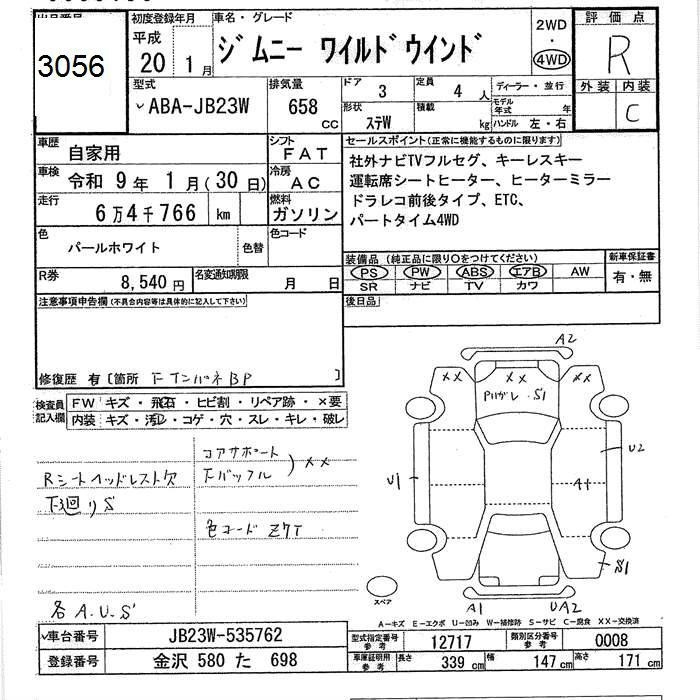 出品番号
3056
初度登録年月
平成
20 1 月
車名・グレード
ジムニー ワイルドウインド
2WD
・
4WD
評価点
R
外装 内装
C
型式
ABA-JB23W
排気量
658
cc
ドア 3
定員 4 人
形状 ステW
積載 kg
ディーラー・並行
モデル年式 年
ハンドル 左・右
車歴 自家用
シフト FAT
車検 令和 9 年 1 月(30 日)
冷房 AC
走行 6万4千766 km
燃料 ガソリン
色 パールホワイト
色替
色コード
R券 8,540 円
名変通知期限 月 日
セールスポイント(正常に機能するものに限ります)
社外ナビTVフルセグ、キーレスキー
運転席シートヒーター、ヒーターミラー
ドラレコ前後タイプ、ETC、
パートタイム4WD
装備品 (純正品に限り○をつけてください)
PS PW ABS エアB AW
SR ナビ TV カワ
新車保証書
有・無
注意事項申告欄(不具合内容等は具体的に記入して下さい)
後日品
修復歴 有 [箇所 FインパネBP ]
検査員記入欄
FW キズ・飛石・ヒビ割・リペア跡・×要
内装 キズ・汚レ・コゲ・穴・スレ・キレ・破レ
Rシートヘッドレスト欠
下廻りS
コアサポート
Fバッフル ) XX
色コード Z7T
各 A.U.S
A2
XX XX XX
Pハガレ・S1
U1
U2
A1
S1
A1 UA2
スペア
A−キズ E−エクボ U−凹み W−補修跡 S−サビ C−腐食 XX−交換済
車台番号 JB23W-535762
登録番号 金沢 580 た 698
型式指定番号参考 12717
類別区分番号参考 0008
車庫証明用参考 長さ 339 cm 幅 147 cm 高さ 171 cm